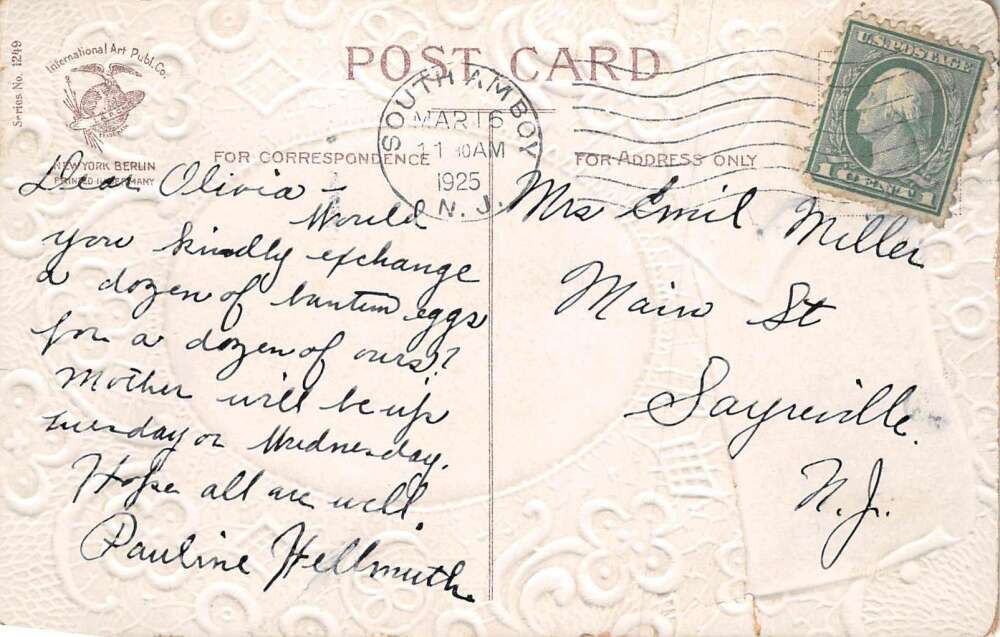 Series No. 1249
International Art Publ. Co.
NEW YORK BERLIN
PRINTED IN GERMANY
POST CARD
SOUTH AMBOY
MAR 16
11 30 AM
1925
N. J.
U.S. POSTAGE
1 CENT 1
FOR CORRESPONDENCE
FOR ADDRESS ONLY
Dear Olivia –
Would
you kindly exchange
a dozen of bantum eggs
for a dozen of ours?
Mother will be up
tuesday or Wednesday.
Hope all are well.
Pauline Hellmuth.
Mrs Emil Miller
Main St
Sayreville.
N.J.